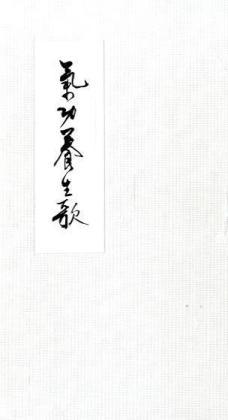 氣功養生歌